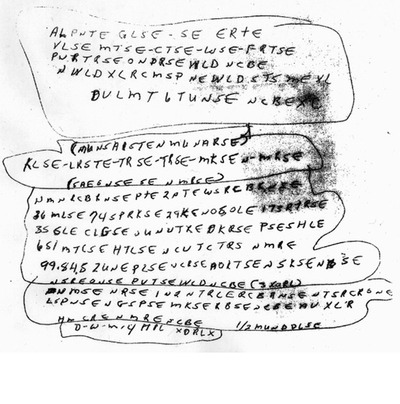 ALPNTE GLSE-SE ERTE
VLSE MTSE-CTSE-WSE-FRTSE
PNRTRSEONDRSEWLD NCBE
NWLDXLRCMSP NEWLDSTSMEXL
DULMT6TUNSE NCBEXC
(MUNSAISTENMUNARSE)
KLSE-LRSTE-TRSE-TRSE-MKSEN-MRSE
(SAEGNSE SE NMBSE)
NMNRCBRNSEPTE2NTEWSRCBRNSE
36MLSE 74SPRKSE29KENOSOLE173RTRSE
35GLECLGSEUNUTXEDKRSE PSESHLE
651MTCSE HTLSENCUTCTRS NMRE
99.84S2UNEPLSENCRSEAOLTSENSKSENBSE
NSREONSE PVTSEWLDNCBE (3XORL)
NMSE NRSE IN2NTRLERCBRNSENTSRCRONE
LSPNSENGSPSE MKSERBSENCBE AUXLR
HMCRENMRENCBE 1/2MUNDDLSE
D-W-M-4 MIL XDRLX